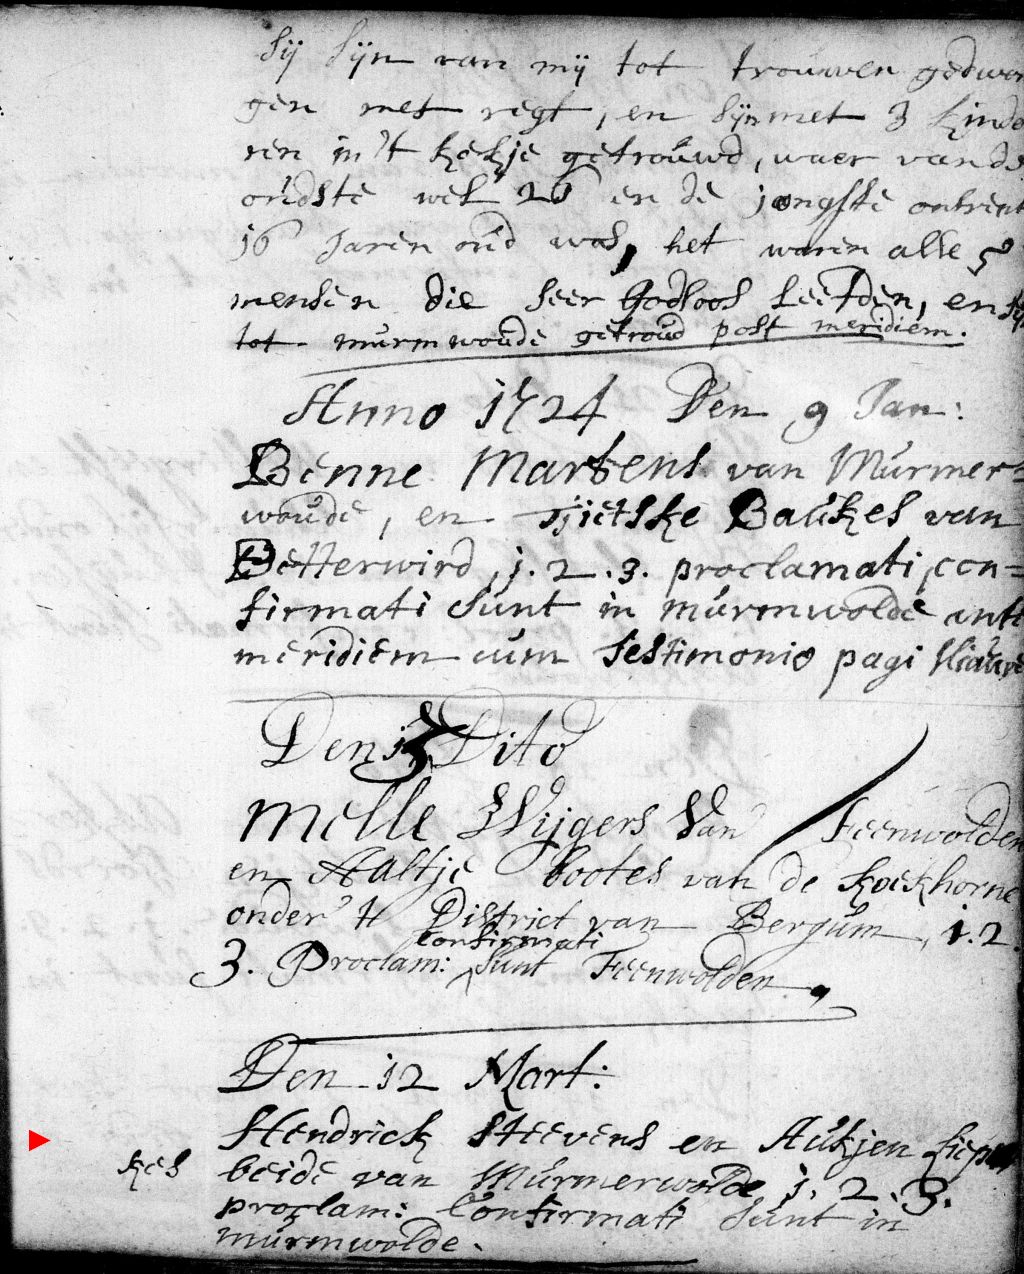 Sij Sijn van mij tot trouwen gedwon
gen met regt, en Sijn met 3 kinde
ren in't kekje getrouwd, waer van de
oudste wel 20 en de jongste ontrent
16 Jaren oud was, het waren alle
mensen die seer Godloos Leefden, en
tot murmwoude getroud post meridiem.
Anno 1724 Den 9 Jan:
Benne Martens van Murmer=
woude, en Tjietske Baukes van
Betterwird, 1. 2. 3. proclamati, con=
firmati Sunt in murmwolde ante
meridiem cum testimonio pagi
Den 13 Dito
Melle Wijgers Van Feenwolden
en Aaltje bootes van de koekhorne
onder 't District van Bergum, 1. 2.
confirmati
3. Proclam: Sunt Feenwolden.
Den 12 Mart:
Hendrick Steevens en Aukjen Siep
kes beide van Murmerwolde, 1. 2. 3.
proclam: Confirmati Sunt in
murmwolde.